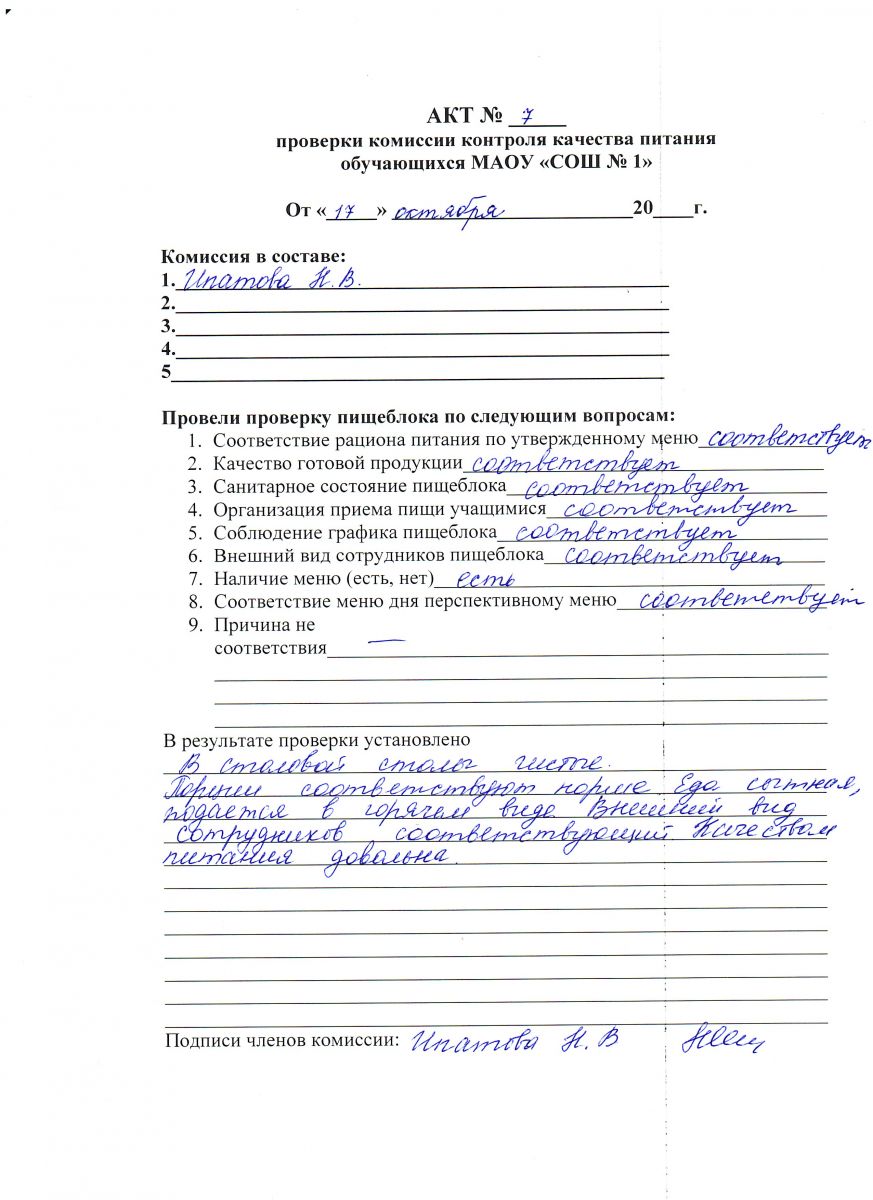 АКТ № 7
проверки комиссии контроля качества питания
обучающихся МАОУ «СОШ № 1»
От « 17 » октября 20____г.
Комиссия в составе:
1. Ипатова Н.В.
2.
3.
4.
5
Провели проверку пищеблока по следующим вопросам:
1. Соответствие рациона питания по утвержденному меню соответствует
2. Качество готовой продукции соответствует
3. Санитарное состояние пищеблока соответствует
4. Организация приема пищи учащимися соответствует
5. Соблюдение графика пищеблока соответствует
6. Внешний вид сотрудников пищеблока соответствует
7. Наличие меню (есть, нет) есть
8. Соответствие меню дня перспективному меню соответствует
9. Причина не
соответствия —
В результате проверки установлено
В столовой столы чистые.
Порции соответствуют норме Еда сытная,
подается в горячем виде Внешний вид
сотрудников соответствующий Качеством
питания довольна.
Подписи членов комиссии: Ипатова Н. В